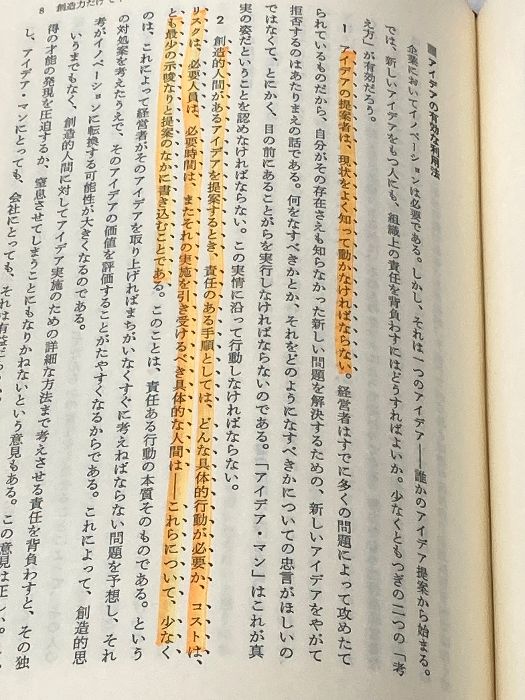 8　創造力だけで
■アイデアの有効な利用法
企業においてイノベーションは必要である。しかし、それは一つのアイデア――誰かのアイデア提案から始まる。
では、新しいアイデアをもつ人にも、組織上の責任を背負わすにはどうすればよいか。少なくともつぎの二つの「考
え方」が有効だろう。
1　アイデアの提案者は、現状をよく知って動かなければならない。経営者はすでに多くの問題によって攻めたて
られているものだから、自分がその存在さえも知らなかった新しい問題を解決するための、新しいアイデアをやがて
拒否するのはあたりまえの話である。何をなすべきかとか、それをどのようになすべきかについての忠言がほしいの
ではなくて、とにかく、目の前にあることがらを実行しなければならないのである。「アイデア・マン」はこれが真
実の姿だということを認めなければならない。この実情に沿って行動しなければならない。
2　創造的人間があるアイデアを提案するとき、責任のある手順としては、どんな具体的行動が必要か、コストは、
リスクは、必要人員は、必要時間は、またその実施を引き受けるべき具体的な人間は――これらについて、少なく
とも最少の示唆なりと提案のなかに書き込むことである。このことは、責任ある行動の本質そのものである。という
のは、これによって経営者がそのアイデアを取り上げればまちがいなくすぐに考えねばならない問題を予想し、それ
の対処案を考えたうえで、そのアイデアの価値を評価することがたやすくなるからである。これによって、創造的思
考がイノベーションに転換する可能性が大きくなるのである。
いうまでもなく、創造的人間に対してアイデア実施のための詳細な方法まで考えさせる責任を背負わすと、その独
得の才能の発現を圧迫するか、窒息させてしまうことにもなりかねないという意見もある。この意見は正しい。
し、アイデア・マンにとっても、会社にとっても、それは有益だ